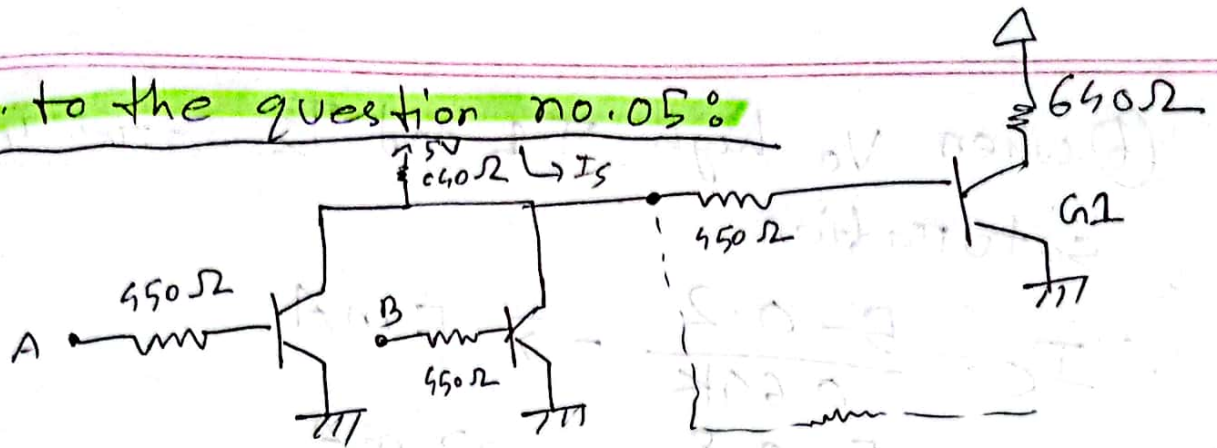 to the question no.05:
5V
640Ω
640Ω ↳ Is
450Ω
G1
450Ω
A
B
450Ω